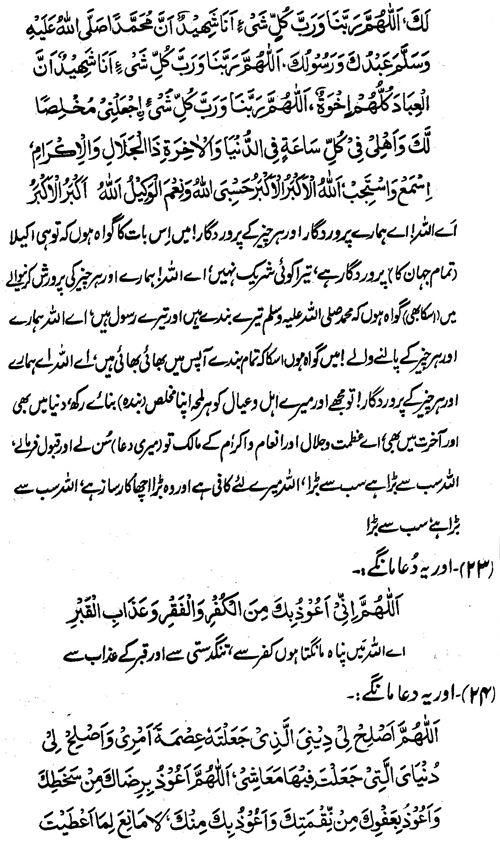 لَكَ، اَللّٰهُمَّ رَبَّنَا وَرَبَّ كُلِّ شَیْءٍ اَنَا شَهِیْدٌ اَنَّ مُحَمَّدًا صَلَّى اللهُ عَلَیْهِ
وَسَلَّمَ عَبْدُكَ وَرَسُوْلُكَ، اَللّٰهُمَّ رَبَّنَا وَرَبَّ كُلِّ شَیْءٍ اَنَا شَهِیْدٌ اَنَّ
الْعِبَادَ كُلُّهُمْ اِخْوَةٌ، اَللّٰهُمَّ رَبَّنَا وَرَبَّ كُلِّ شَیْءٍ اِجْعَلْنِیْ مُخْلِصًا
لَّكَ وَاَهْلِیْ فِیْ كُلِّ سَاعَةٍ فِی الدُّنْیَا وَالْاٰخِرَةِ ذَا الْجَلَالِ وَالْاِكْرَامِ،
اِسْمَعْ وَاسْتَجِبْ، اَللهُ الْاَكْبَرُ الْاَكْبَرُ حَسْبِیَ اللهُ وَنِعْمَ الْوَكِیْلُ اَللهُ اَكْبَرُ الْاَكْبَرُ
اَے اللہ! اے ہمارے پروردگار اور ہر چیز کے پروردگار! میں اِس بات کا گواہ ہوں کہ تو ہی اکیلا
(تمام جہان کا) پروردگار ہے، تیرا کوئی شریک نہیں، اے اللہ! ہمارے اور ہر چیز کی پرورش کرنیوالے
میں (اسکا بھی) گواہ ہوں کہ محمد صلی اللہ علیہ وسلم تیرے بندے ہیں اور تیرے رسول ہیں، اے اللہ ہمارے
اور ہر چیز کے پالنے والے! میں گواہ ہوں اسکا کہ تمام بندے آپس میں بھائی بھائی ہیں، اے اللہ! اے ہمارے
اور ہر چیز کے پروردگار! تو مجھے اور میرے اہل و عیال کو ہر لمحہ اپنا مخلص (بندہ) بنائے رکھ، دنیا میں بھی
اور آخرت میں بھی، اے عظمت و جلال اور انعام و اکرام کے مالک تو (میری دعا) سُن لے اور قبول فرمالے،
اللہ سب سے بڑا ہے سب سے بڑا، اللہ میرے لئے کافی ہے اور وہ بڑا اچھا کارساز ہے، اللہ سب سے
بڑا ہے، سب سے بڑا
(۲۳)۔اور یہ دُعا مانگے:۔
اَللّٰهُمَّ اِنِّیْ اَعُوْذُ بِكَ مِنَ الْكُفْرِ وَالْفَقْرِ وَعَذَابِ الْقَبْرِ
اے اللہ میں پناہ مانگتا ہوں کفر سے، تنگدستی سے اور قبر کے عذاب سے
(۲۴)۔اور یہ دعا مانگے:۔
اَللّٰهُمَّ اَصْلِحْ لِیْ دِیْنِیَ الَّذِیْ جَعَلْتَهٗ عِصْمَةَ اَمْرِیْ وَاَصْلِحْ لِیْ
دُنْیَایَ الَّتِیْ جَعَلْتَ فِیْهَا مَعَاشِیْ، اَللّٰهُمَّ اَعُوْذُ بِرِضَاكَ مِنْ سَخَطِكَ
وَاَعُوْذُ بِعَفْوِكَ مِنْ نِّقْمَتِكَ وَاَعُوْذُ بِكَ مِنْكَ، لَا مَانِعَ لِمَا اَعْطَیْتَ